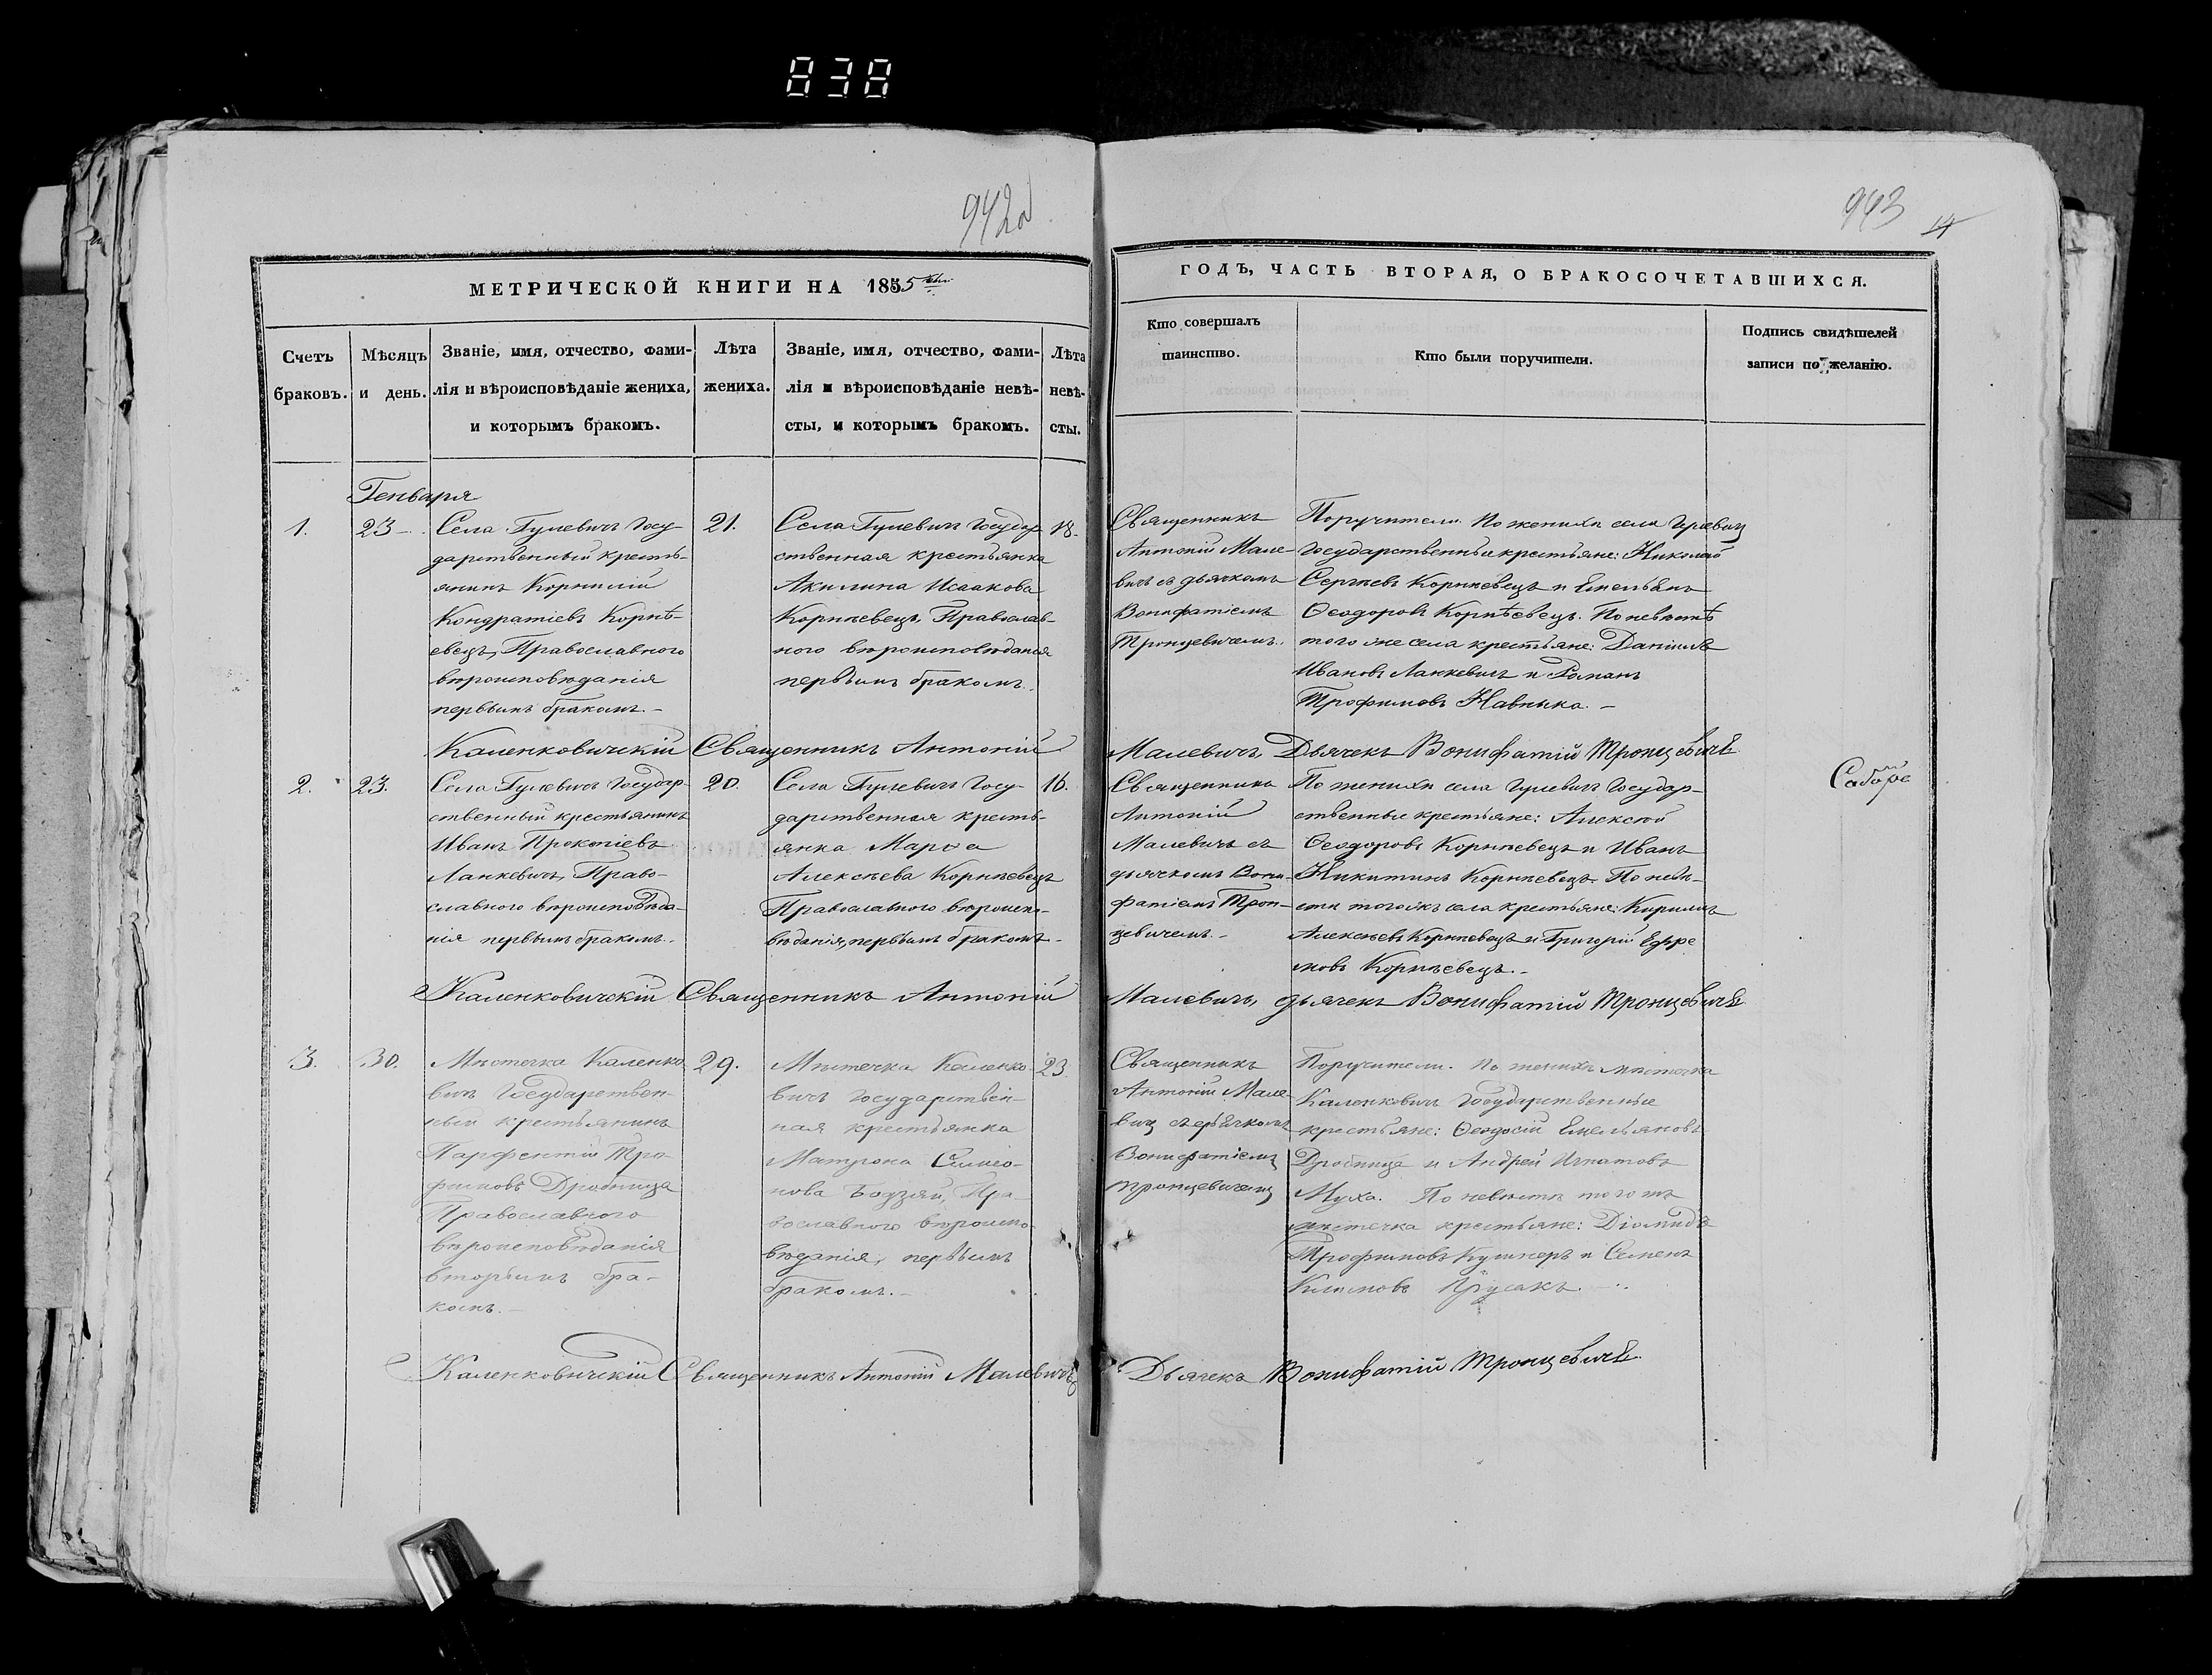 838
942
943
МЕТРИЧЕСКОЙ КНИГИ НА 1855
ГОДЪ, ЧАСТЬ ВТОРАЯ, О БРАКОСОЧЕТАВШИХСЯ.
Счетъ
браковъ.
Мѣсяцъ
и день.
Званіе, имя, отчество, фами-
лія и вѣроисповѣданіе жениха,
и которымъ бракомъ.
Лѣта
жениха.
Званіе, имя, отчество, фами-
лія и вѣроисповѣданіе невѣ-
сты, и которымъ бракомъ.
Лѣта
невѣ-
сты.
Кто совершалъ
таинство.
Кто были поручители.
Подпись свидѣтелей
записи по желанію.
Генваря
1.
23
Села Гулевичъ Госу-
дарственный кресть-
янинъ Корнилій
Кондратіевъ Корнѣ-
евецъ, Православнаго
вѣроисповѣданія
первымъ бракомъ.
21.
Села Гулевичъ Государ-
ственная крестьянка
Акилина Исаакова
Корнѣевецъ, Православ-
ного вѣроисповѣданія
первымъ бракомъ.
18.
Священникъ
Антоній Мале-
вичъ съ дьячкомъ
Вонифатіемъ
Тронцевичемъ.
Поручители. По женихѣ села Гулевич
Государственные крестьяне: Николай
Сергѣевъ Корнѣевецъ и Емельянъ
Ѳеодоровъ Корнѣевецъ. По невѣстѣ
того же села крестьяне: Даніилъ
Ивановъ Ланкевичъ и Романъ
Трофимовъ Навныка.
Каленковичскій Священникъ Антоній Малевичъ, Дьячекъ Вонифатій Тронцевичъ
2.
23.
Села Гулевичъ Государ-
ственный крестьянинъ
Иванъ Прокопіевъ
Ланкевичъ, Право-
славного вѣроисповѣда-
нія первымъ бракомъ.
20.
Села Гулевичъ Госу-
дарственная кресть-
янка Марѳа
Алексѣева Корнѣевецъ
Православного вѣроиспо-
вѣданія, первымъ бракомъ.
16.
Священникъ
Антоній
Малевичъ съ
дьячкомъ Вони-
фатіемъ Трон-
цевичемъ.
По женихѣ села Гулевичъ Государ-
ственные крестьяне: Алексѣй
Ѳеодоровъ Корнѣевецъ и Иванъ
Никитинъ Корнѣевецъ. По невѣ-
стѣ тогожъ села крестьяне: Кирилъ
Алексѣевъ Корнѣевецъ и Григорій Ефре
мовъ Корнѣевецъ.
Каленковичскій Священникъ Антоній Малевичъ, дьячекъ Вонифатій Тронцевичъ
3.
30.
Мѣстечка Каленко
вичъ Государствен-
ный крестьянинъ
Парфентій Тро-
фимовъ Дробница
Православного
вѣроисповѣданія
вторымъ бра-
комъ.
29.
Мѣстечка Каленко
вичъ Государствен-
ная крестьянка
Матрона Симео-
нова Бодзяй, Пра-
вославного вѣроиспо-
вѣданія, первымъ
бракомъ.
23
Священникъ
Антоній Мале
вич съ дьячкомъ
Вонифатіемъ
Тронцевичемъ
Поручители. По женихѣ мѣстечка
Каленковичъ Государственные
крестьяне: Ѳеодосій Емельяновъ
Дробница и Андрей Игнатовъ
Муха. По невѣстѣ того жъ
мѣстечка крестьяне: Діомидъ
Трофимовъ Кушнеръ и Семенъ
Климовъ Прусакъ.
Каленковичскій Священникъ Антоній Малевичъ Дьячекъ Вонифатій Тронцевичъ